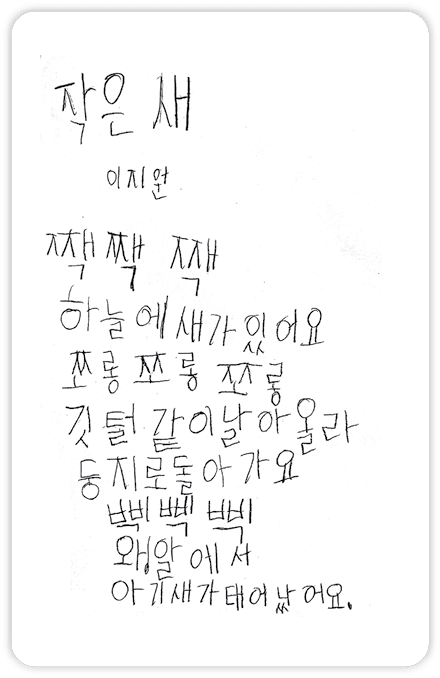 작은 새
이지원
짹 짹 짹
하늘에 새가 있어요
쪼롱 쪼롱 쪼롱
깃털 같이 날아 올라
둥지로 돌아가요
삑 삑 삑
와, 알에서
아기새가 태어났어요.